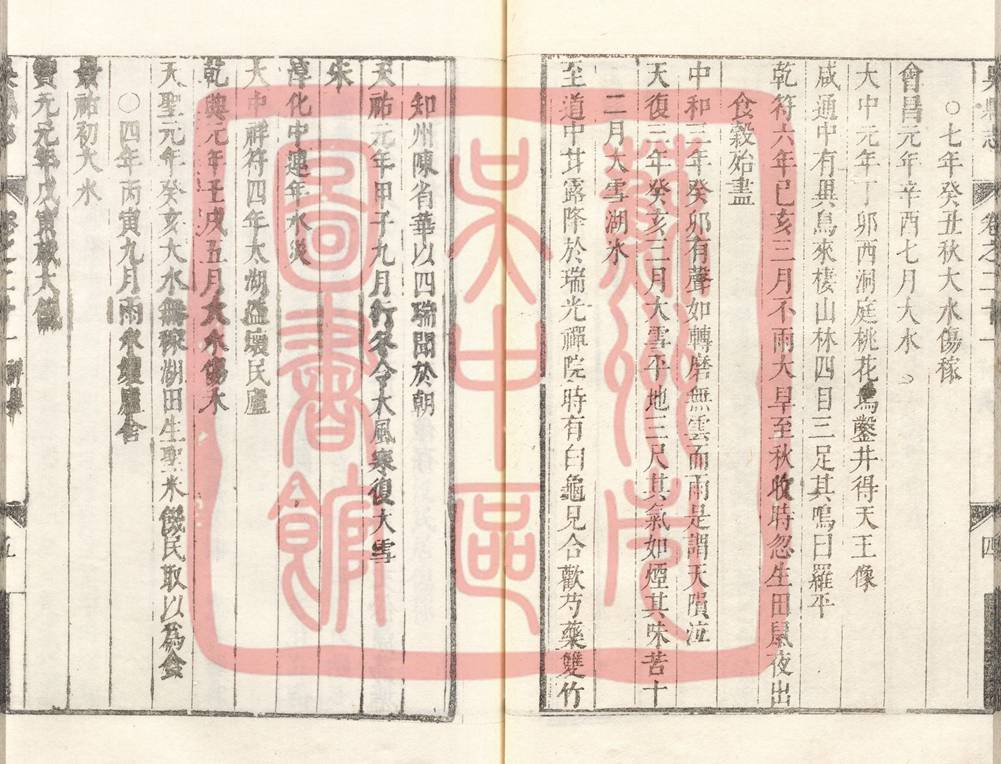 吳縣志 卷之二十一 四
○七年癸丑秋大水傷稼
會昌元年辛酉七月大水
大中元年丁卯西洞庭桃花塢鑿井得天王像
咸通中有異鳥來棲山林四目三足其鳴曰羅平
乾符六年己亥三月不雨大旱至秋收時忽生田鼠夜出
食穀殆盡
中和三年癸卯有聲如轉磨無雲而雨是謂天隕泣
天復三年癸亥三月大雪平地三尺其氣如煙其味苦十
二月大雪湖氷
至道中甘露降於瑞光禪院時有白龜見合歡芍藥雙竹
知州陳省華以四瑞聞於朝
天祐元年甲子九月行冬令大風寒復大雪
宋
淳化中連年水災
大中祥符四年太湖溢壞民廬
乾興元年壬戌五月大水傷木
天聖元年癸亥大水無稼湖田生聖米饑民取以為食
○四年丙寅九月雨水壞廬舍
景祐初大水
寶元元年戊寅歲大饑
吳縣志 卷之二十一 祥異 五
蘇州市
吳中區
圖書館